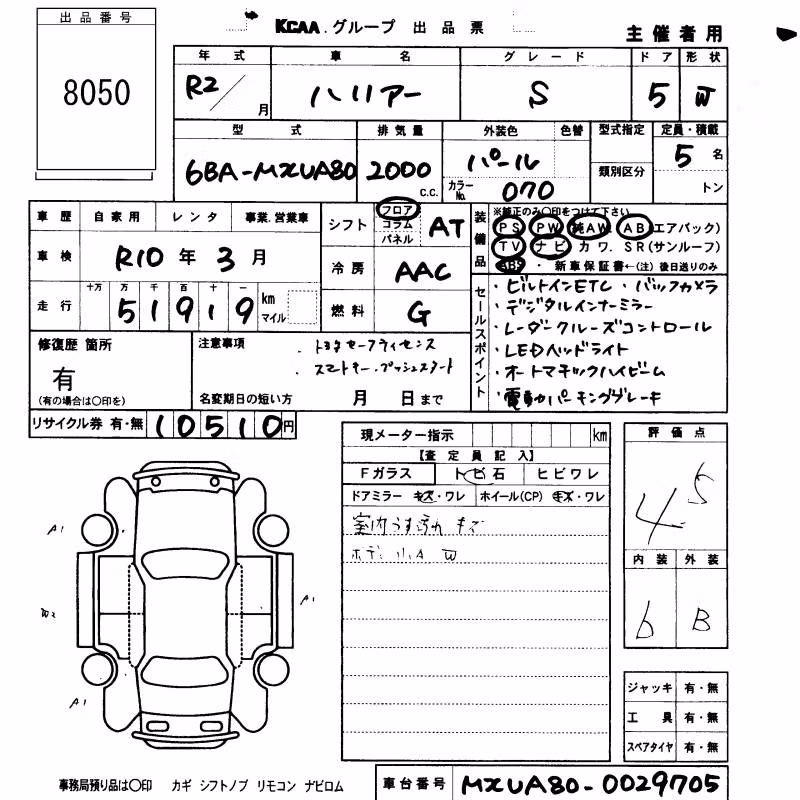 出品番号
8050
KCAA.グループ 出品票
主催者用
年式 車名 グレード ドア 形状
R2/月 ハリアー S 5 W
型式 排気量 外装色 色替 型式指定 定員・積載
6BA-MXUA80 2000 c.c. パール 類別区分 5名
カラーNo. 070 トン
車歴 自家用 レンタ 事業.営業車
車検 R10年3月
走行 十万 万 千 百 十 一
51919 km マイル
シフト フロア コラム パネル AT
冷房 AAC
燃料 G
装備品 ※純正のみ○印をつけて下さい
PS PW 純AW AB(エアバック)
TV ナビ カワ. SR(サンルーフ)
ABS ・ 新車保証書←(注)後日送りのみ
セールスポイント
・ビルトインETC ・バックカメラ
・デジタルインナーミラー
・レーダークルーズコントロール
・LEDヘッドライト
・オートマチックハイビーム
・電動パーキングブレーキ
修復歴 箇所
有
(有の場合は○印を)
注意事項
・トヨタセーフティセンス
・スマートキー・プッシュスタート
名変期日の短い方 月 日まで
リサイクル券 有・無 10510円
現メーター指示 km
【査定員記入】
Fガラス トビ石 ヒビワレ
ドアミラー キズ・ワレ ホイール(CP) キズ・ワレ
室内うす汚れ キズ
ボデー 小A W
評価点
4.5
内装 外装
b B
A1
A1
W2
A1
ジャッキ 有・無
工具 有・無
スペアタイヤ 有・無
事務局預り品は○印 カギ シフトノブ リモコン ナビロム
車台番号 MXUA80-0029705